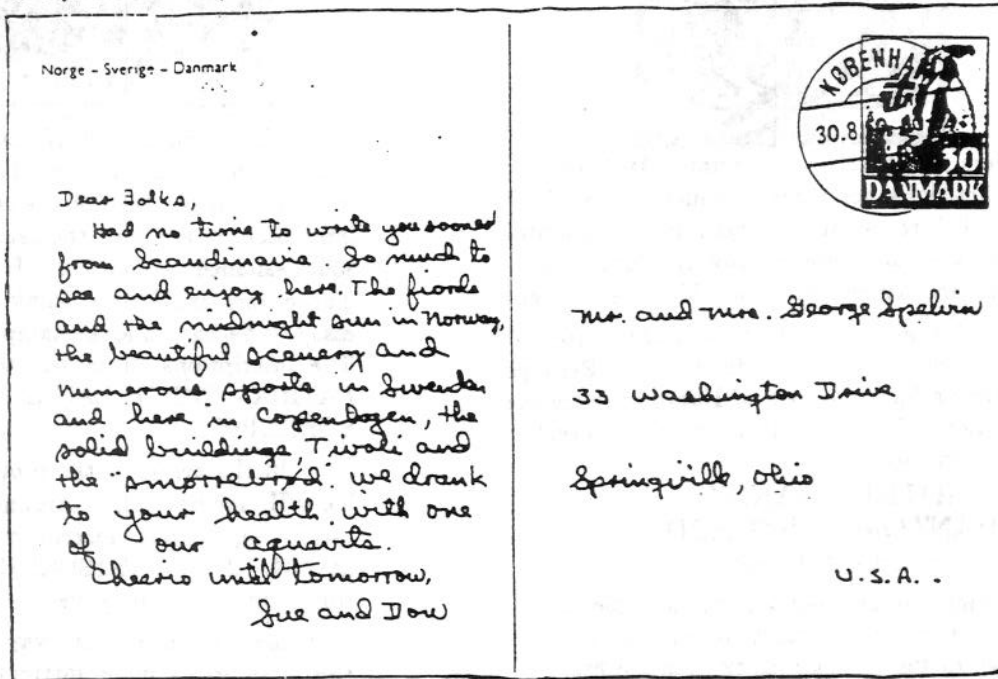 Norge - Sverige - Danmark
KØBENHA
30.8
30
DANMARK
Dear Folks,
Had no time to write you sooner
from Scandinavia. So much to
see and enjoy here. The fiords
and the midnight sun in Norway,
the beautiful scenery and
numerous sports in Sweden
and here in Copenhagen, the
solid buildings, Tivoli and
the "smørrebrød". We drank
to your health with one
of our aquavits.
Cheerio until tomorrow,
Sue and Don
Mr. and Mrs. George Spelvin
33 Washington Drive
Springville, Ohio
U.S.A.